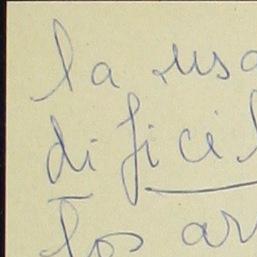 la usa
di ficil
los ar